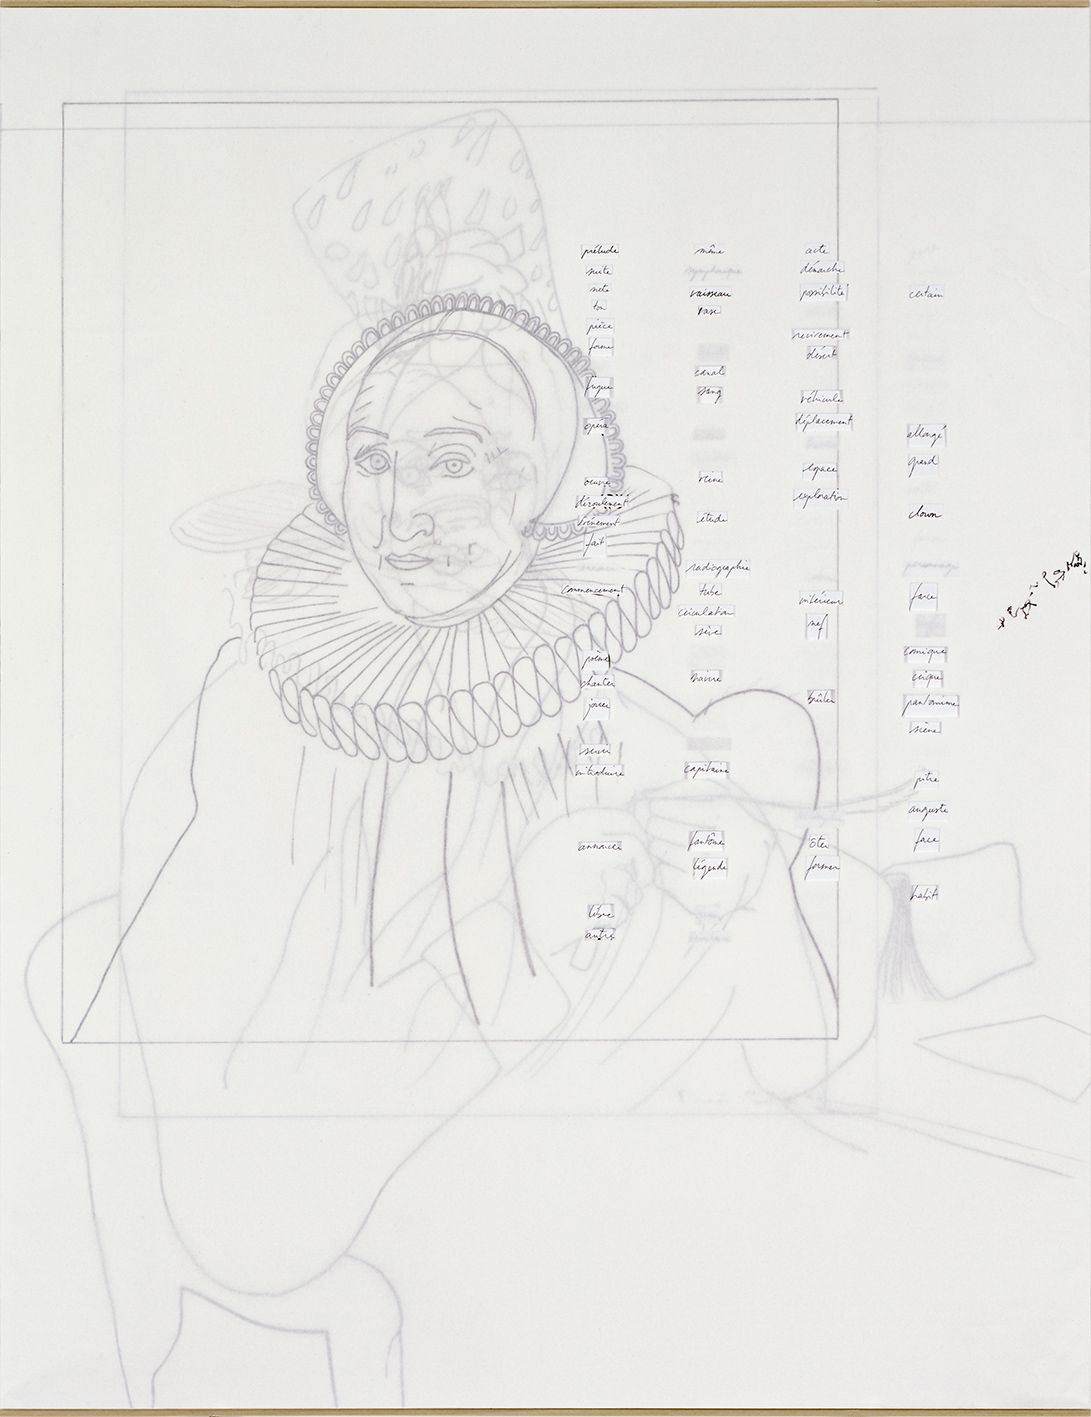 prélude
suite
note
ton
pièce
forme
fugue
opéra
oeuvre
déroulement
évènement
fait
commencement
poème
chanter
jouer
suivre
introduire
annoncer
libre
autre
même
symphonique
vaisseau
vase
canal
sang
veine
étude
radiographie
tube
circulation
sève
navire
capitaine
fantôme
légende
acte
démarche
possibilité
revirement
désert
véhicule
déplacement
espace
exploration
intérieur
nef
brûler
ôter
former
certain
allongé
grand
clown
personnage
farce
comique
cirque
pantomime
scène
pitre
auguste
face
habit